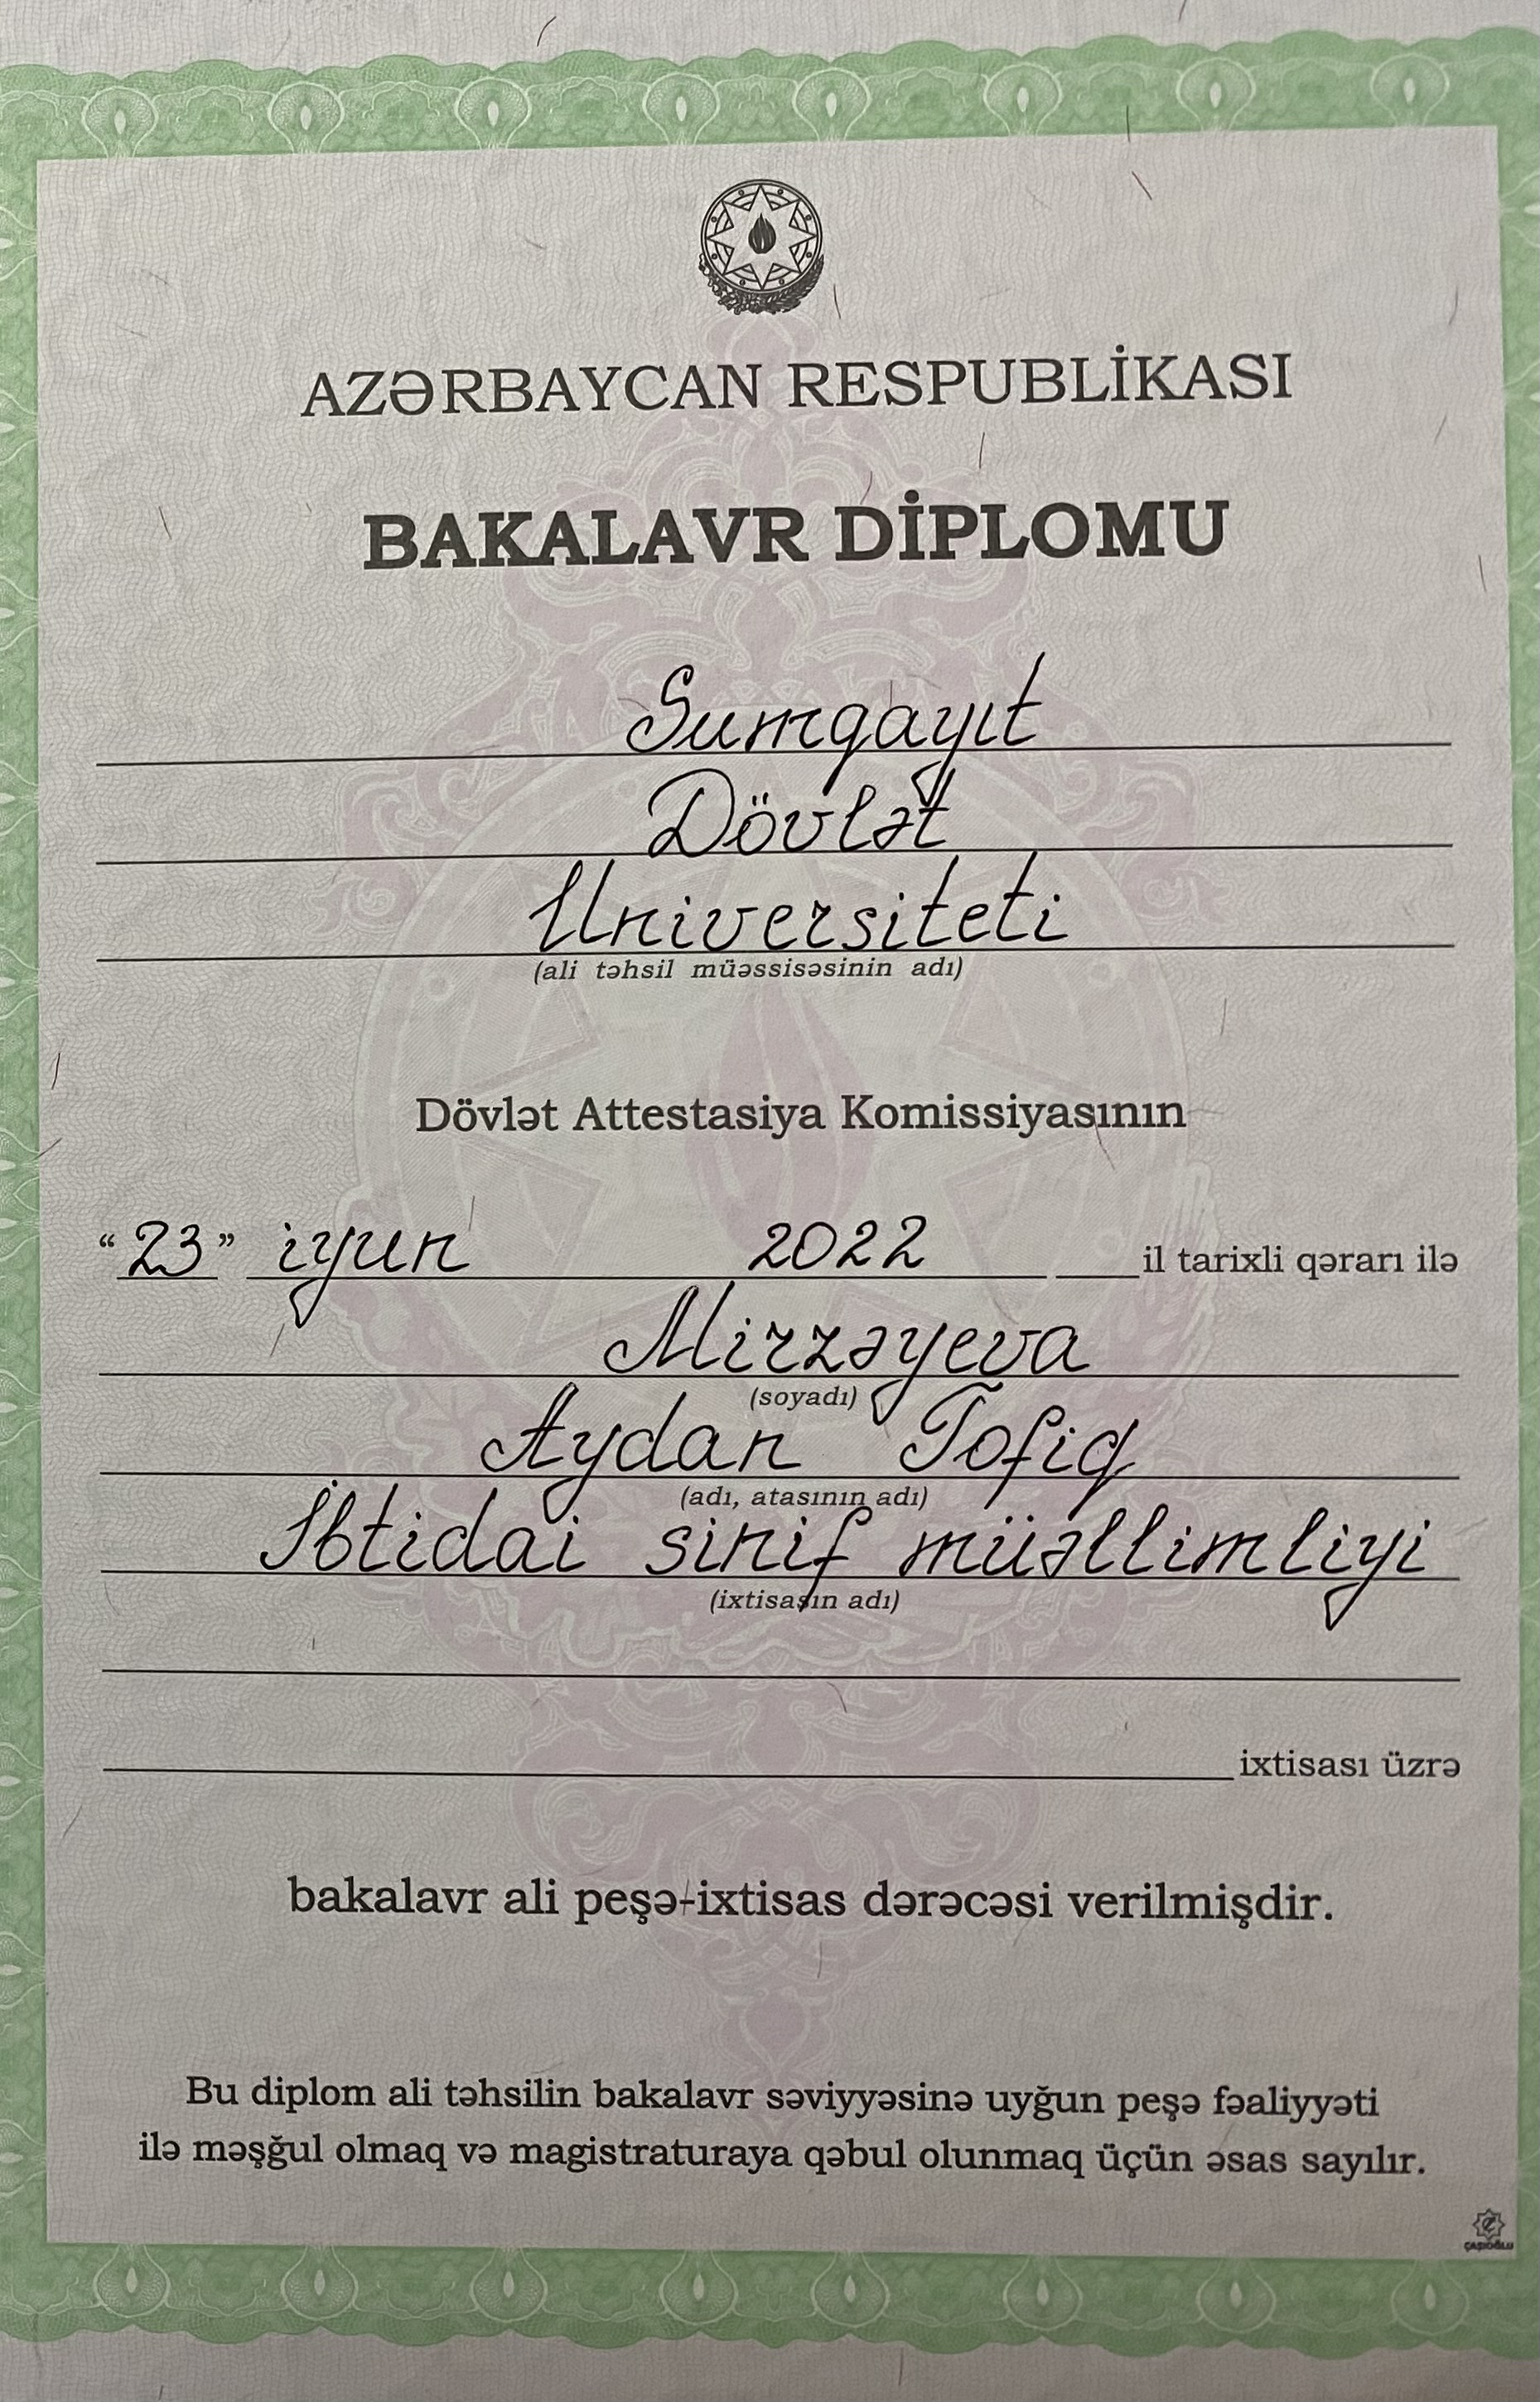 AZƏRBAYCAN RESPUBLİKASI
BAKALAVR DİPLOMU
Sumqayıt
Dövlət
Universiteti
(ali təhsil müəssisəsinin adı)
Dövlət Attestasiya Komissiyasının
“23” iyun 2022 il tarixli qərarı ilə
Mirzəyeva
(soyadı)
Aydan Tofiq
(adı, atasının adı)
İbtidai sinif müəllimliyi
(ixtisasın adı)
ixtisası üzrə
bakalavr ali peşə-ixtisas dərəcəsi verilmişdir.
Bu diplom ali təhsilin bakalavr səviyyəsinə uyğun peşə fəaliyyəti
ilə məşğul olmaq və magistraturaya qəbul olunmaq üçün əsas sayılır.
ÇAŞIOĞLU